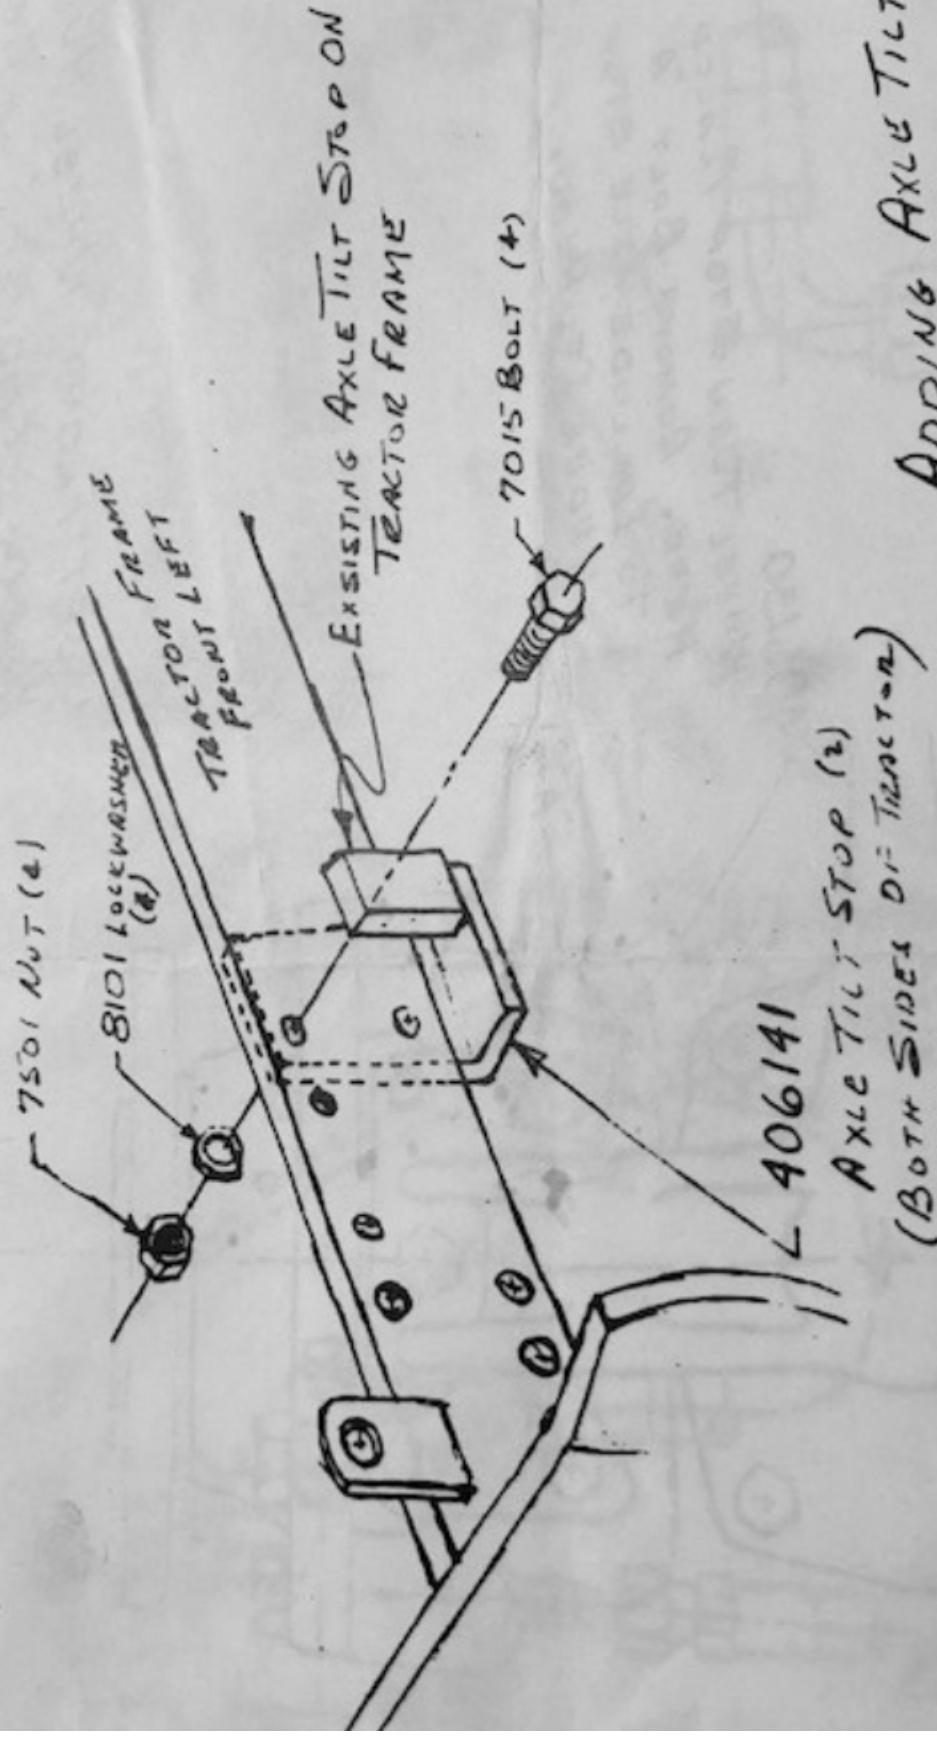 7501 NUT (4)
8101 LOCKWASHER
(4)
TRACTOR FRAME
FRONT LEFT
EXSISTING AXLE TILT STOP ON
TRACTOR FRAME
7015 BOLT (4)
406141
AXLE TILT STOP (2)
(BOTH SIDES OF TRACTOR)
ADDING AXLE TILT